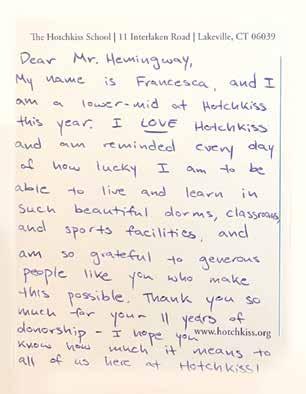 The Hotchkiss School | 11 Interlaken Road | Lakeville, CT 06039
Dear Mr. Hemingway,
My name is Francesca, and I
am a lower-mid at Hotchkiss
this year. I LOVE Hotchkiss
and am reminded every day
of how lucky I am to be
able to live and learn in
such beautiful dorms, classrooms,
and sports facilities, and
am so grateful to generous
people like you who make
this possible. Thank you so
much for your 11 years of
donorship - I hope you
www.hotchkiss.org
know how much it means to
all of us here at Hotchkiss!